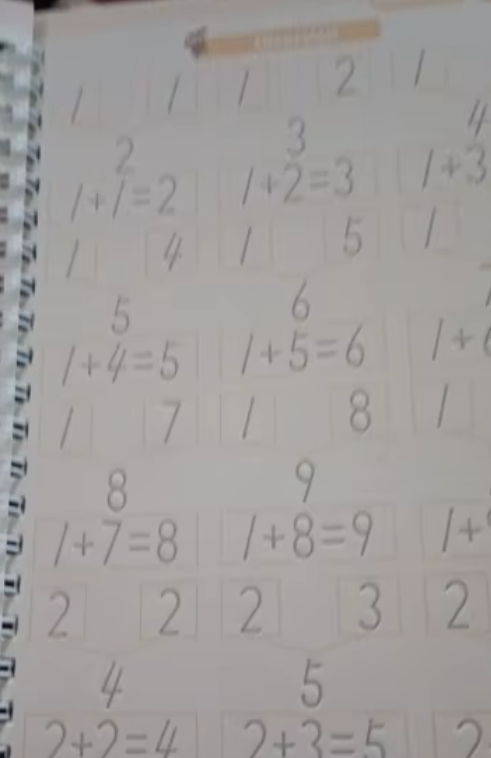 1 1 1 2 1
2 3 4
1+1=2 1+2=3 1+3
1 4 1 5 1
5 6
1+4=5 1+5=6 1+
1 7 1 8 1
8 9
1+7=8 1+8=9 1+
2 2 2 3 2
4 5
2+2=4 2+3=5 2